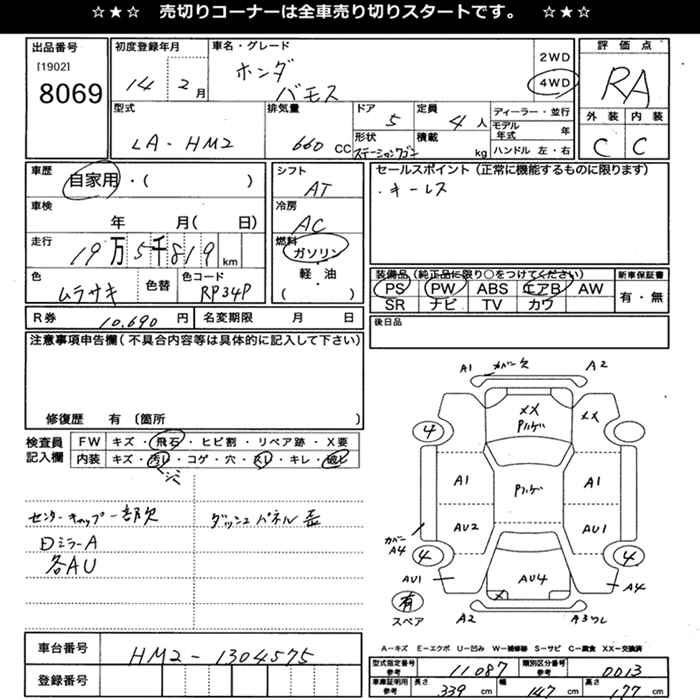 ☆★☆ 売切りコーナーは全車売り切りスタートです。 ☆★☆
出品番号
[1902]
8069
初度登録年月
14 2 月
車名・グレード
ホンダ
バモス
2WD
4WD
評価点
RA
型式
LA-HM2
排気量
660 CC
ドア
5
定員
4 人
形状
ステーションワゴン
積載
kg
ディーラー・並行
モデル年式 年
ハンドル 左・右
外装 内装
C C
車歴
自家用・( )
シフト
AT
セールスポイント(正常に機能するものに限ります)
・キーレス
車検
年 月( 日)
冷房
AC
走行
19万5千819 km
燃料
ガソリン
・
軽・油
( )
色
ムラサキ
色替
色コード
RP34P
装備品(純正品に限り○をつけてください)
PS PW ABS エアB AW
SR ナビ TV カワ
新車保証書
有・無
R券 10,690 円
名変期限 月 日
後日品
注意事項申告欄(不具合内容等は具体的に記入して下さい)
修復歴 有 (箇所 )
検査員
記入欄
FW キズ・飛石・ヒビ割・リペア跡・X要
内装 キズ・汚レ・コゲ・穴・スレ・キレ・破ヒ
シミ
センターキャップ一部欠
ダッシュパネル
ミラーA
各AU
A1
カバー欠
A2
XX
XX
4
A1
A1
AU2
AU1
カバー
A4
4
4
AU1
AU4
A4
X
有
スペア
A2
A3
A-キズ E-エクボ U-凹み W-補修跡 S-サビ C-腐食 XX-交換済
車台番号 HM2-1304575
登録番号
型式指定番号
参考
11087
類別区分番号
参考
0013
車庫証明用
参考
長さ 339 cm
幅 147 cm
高さ 177 cm